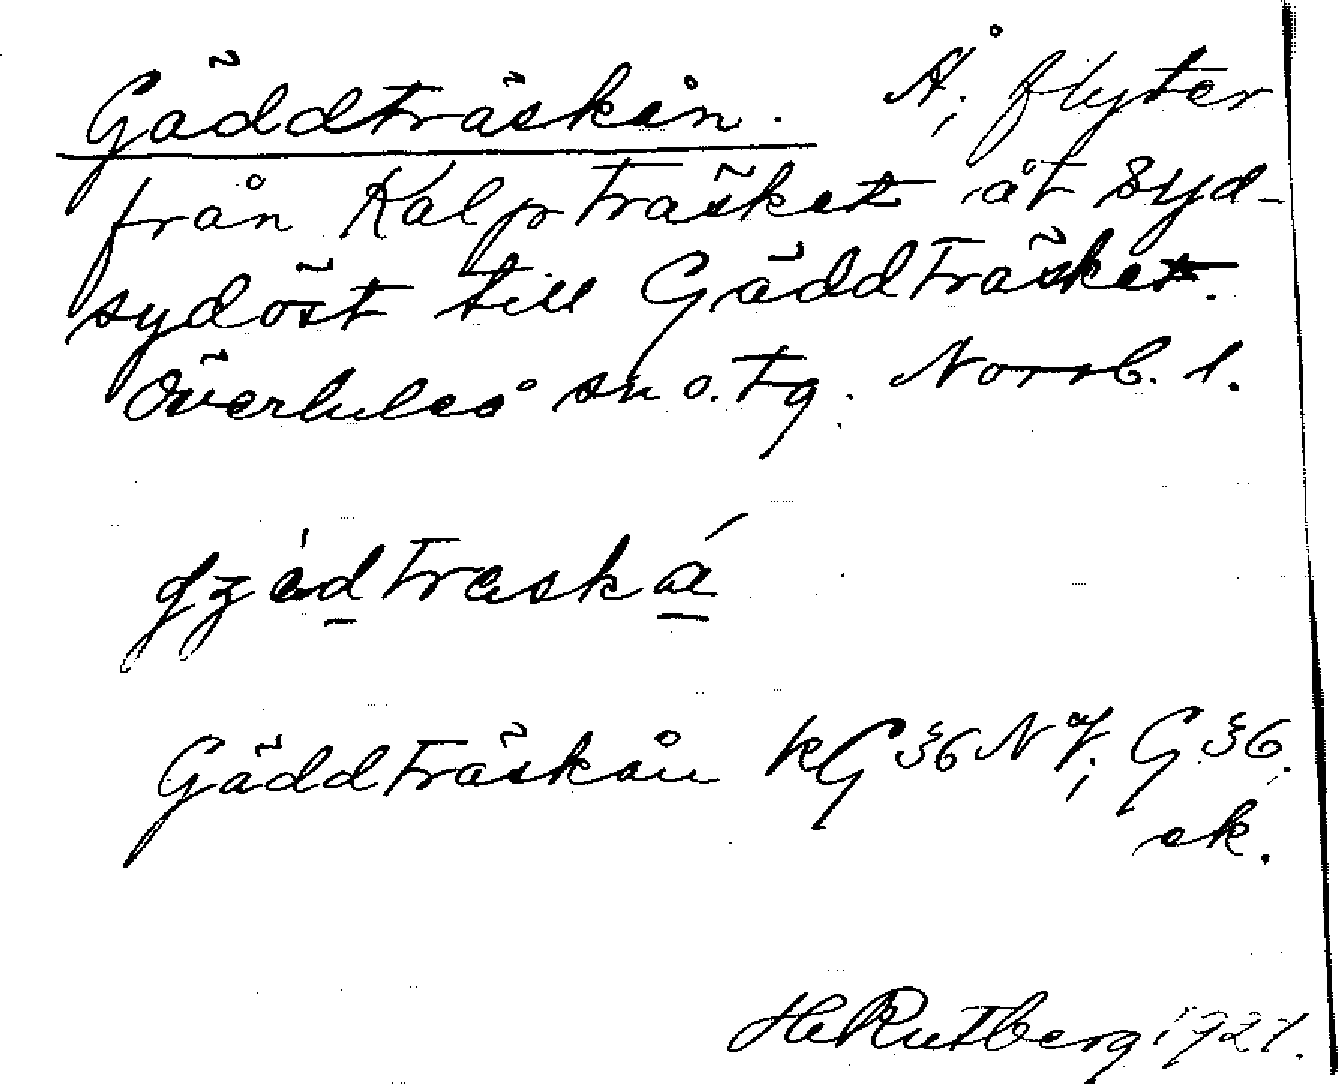 Gäddträskån. Å; flyter
från Kalpträsket åt syd-
sydost till Gäddträsket.
Överluleå sn o. tg. Norrb. l.
Gäddträskån kG 36 NV; G 36.
ek.
H Rutberg 1927.